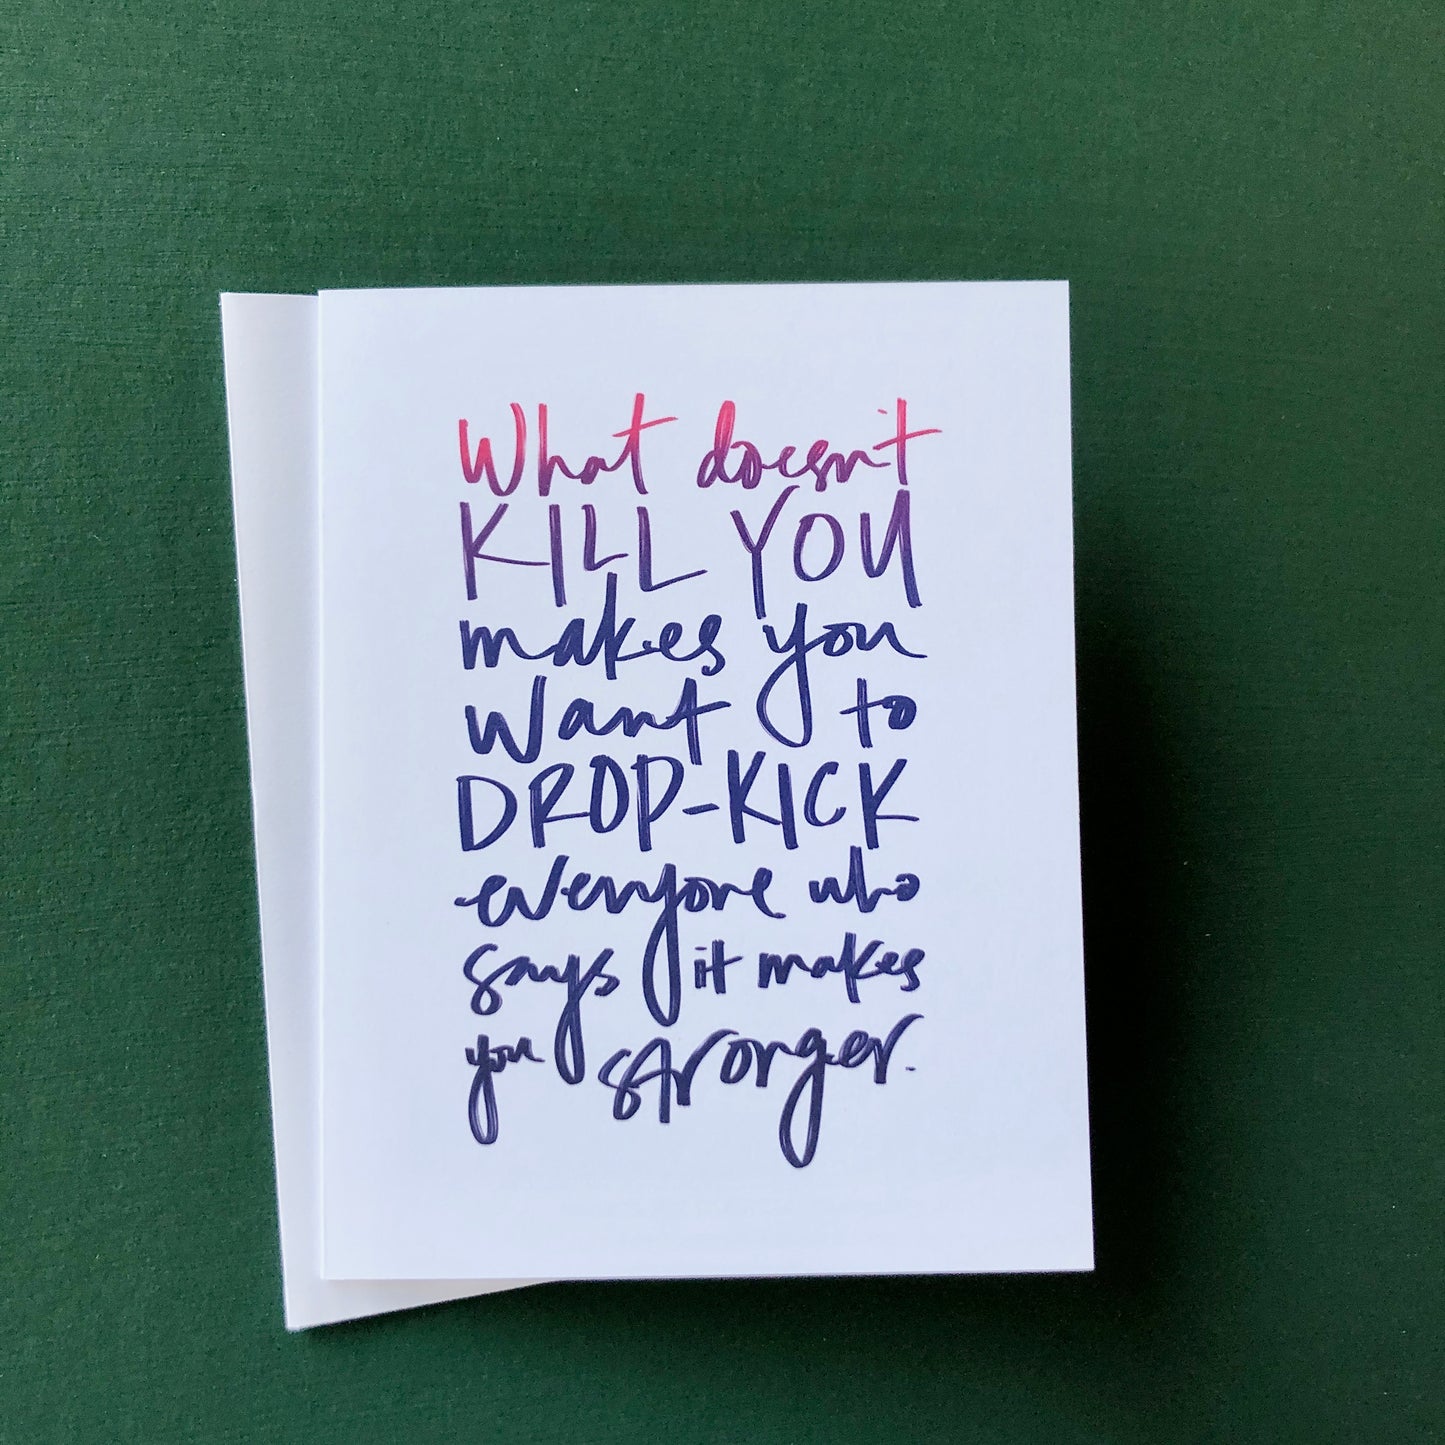 What doesn't
KILL YOU
makes you
want to
DROP-KICK
everyone who
says it makes
you stronger.